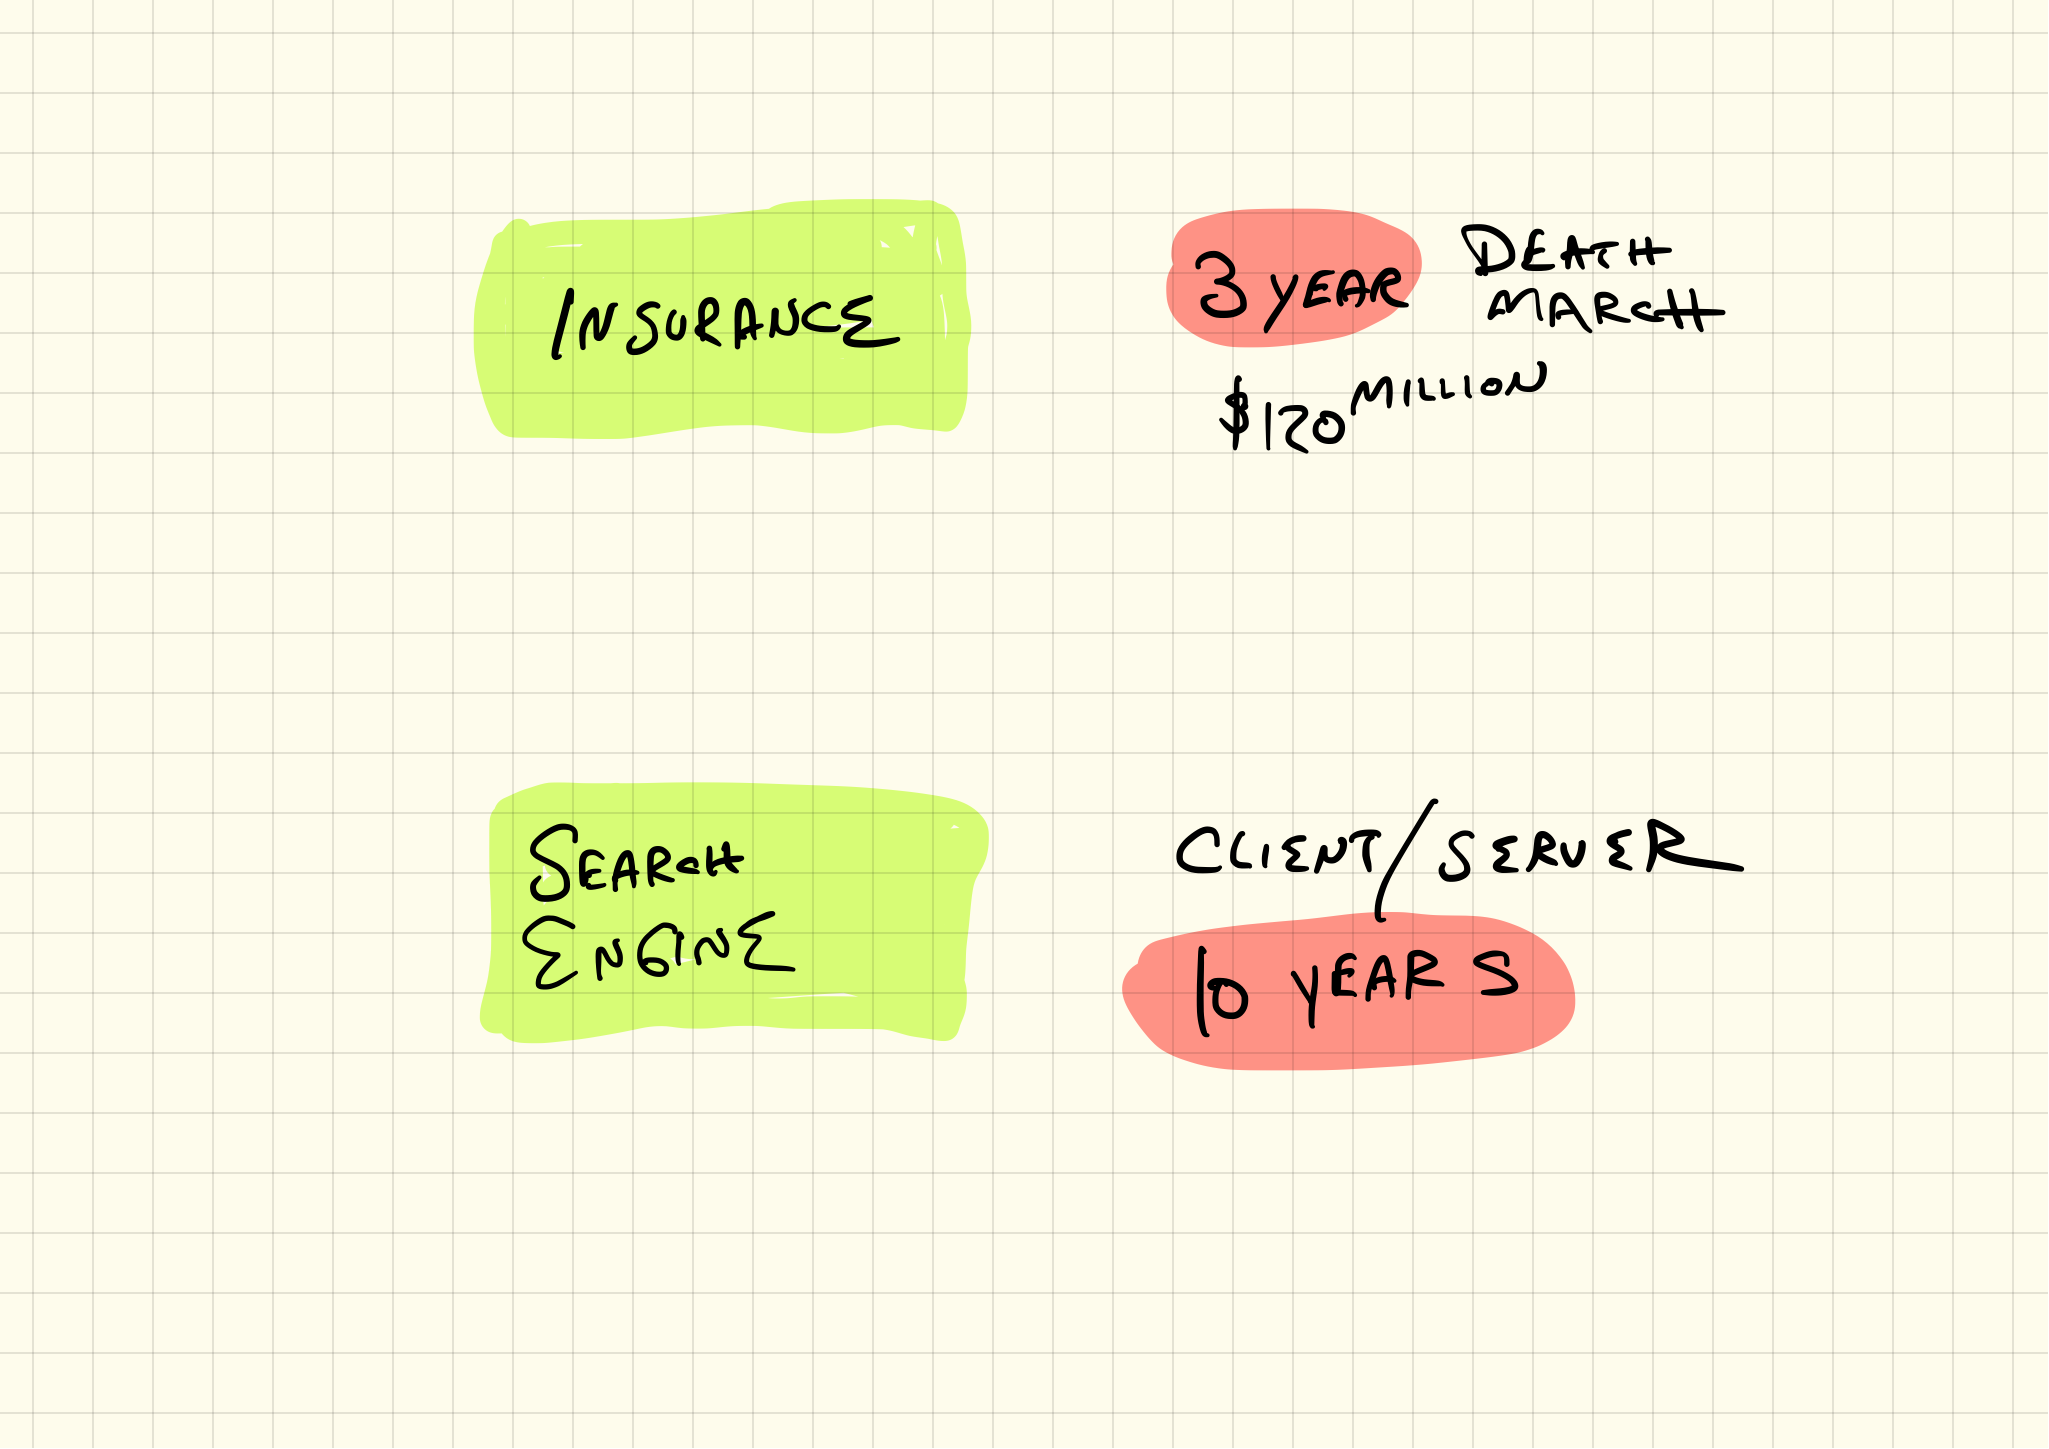 INSURANCE
3 YEAR DEATH
MARCH
$120 MILLION
SEARCH
ENGINE
CLIENT/SERVER
10 YEARS